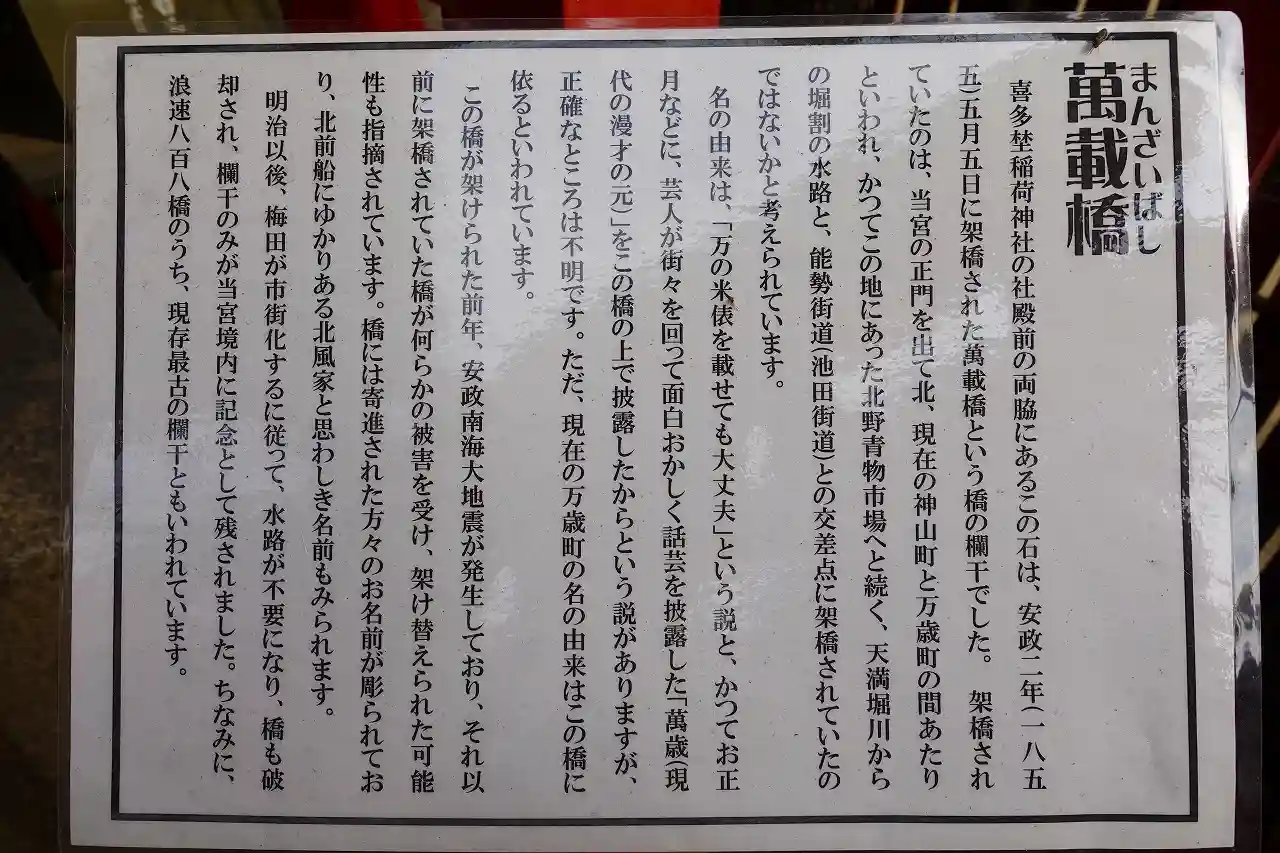 まんざいばし
萬載橋
喜多埜稲荷神社の社殿前の両脇にあるこの石は、安政二年(一八五
五)五月五日に架橋された萬載橋という橋の欄干でした。 架橋され
ていたのは、当宮の正門を出て北、現在の神山町と万歳町の間あたり
といわれ、かつてこの地にあった北野青物市場へと続く、天満堀川から
の堀割の水路と、能勢街道(池田街道)との交差点に架橋されていたの
ではないかと考えられています。
名の由来は、「万の米俵を載せても大丈夫」という説と、かつてお正
月などに、芸人が街々を回って面白おかしく話芸を披露した「萬歳(現
代の漫才の元)」をこの橋の上で披露したからという説がありますが、
正確なところは不明です。ただ、現在の万歳町の名の由来はこの橋に
依るといわれています。
この橋が架けられた前年、安政南海大地震が発生しており、それ以
前に架橋されていた橋が何らかの被害を受け、架け替えられた可能
性も指摘されています。橋には寄進された方々のお名前が彫られてお
り、北前船にゆかりある北風家と思わしき名前もみられます。
明治以後、梅田が市街化するに従って、水路が不要になり、橋も破
却され、欄干のみが当宮境内に記念として残されました。ちなみに、
浪速八百八橋のうち、現存最古の欄干ともいわれています。